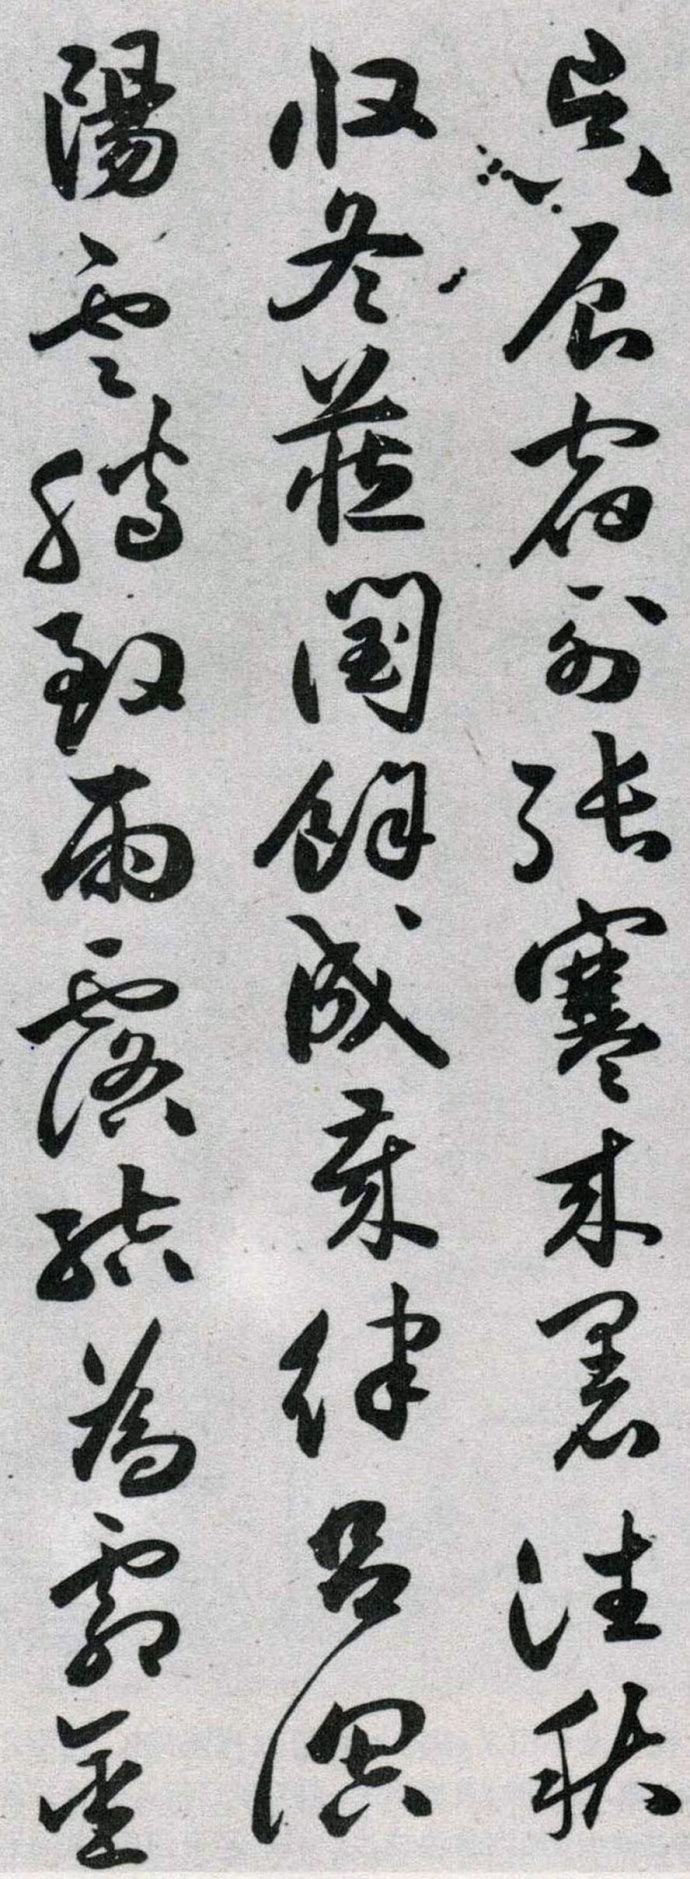 昃辰宿列張寒来暑往秋
收冬藏閏餘成歲律呂調
陽雲騰致雨露結為霜金